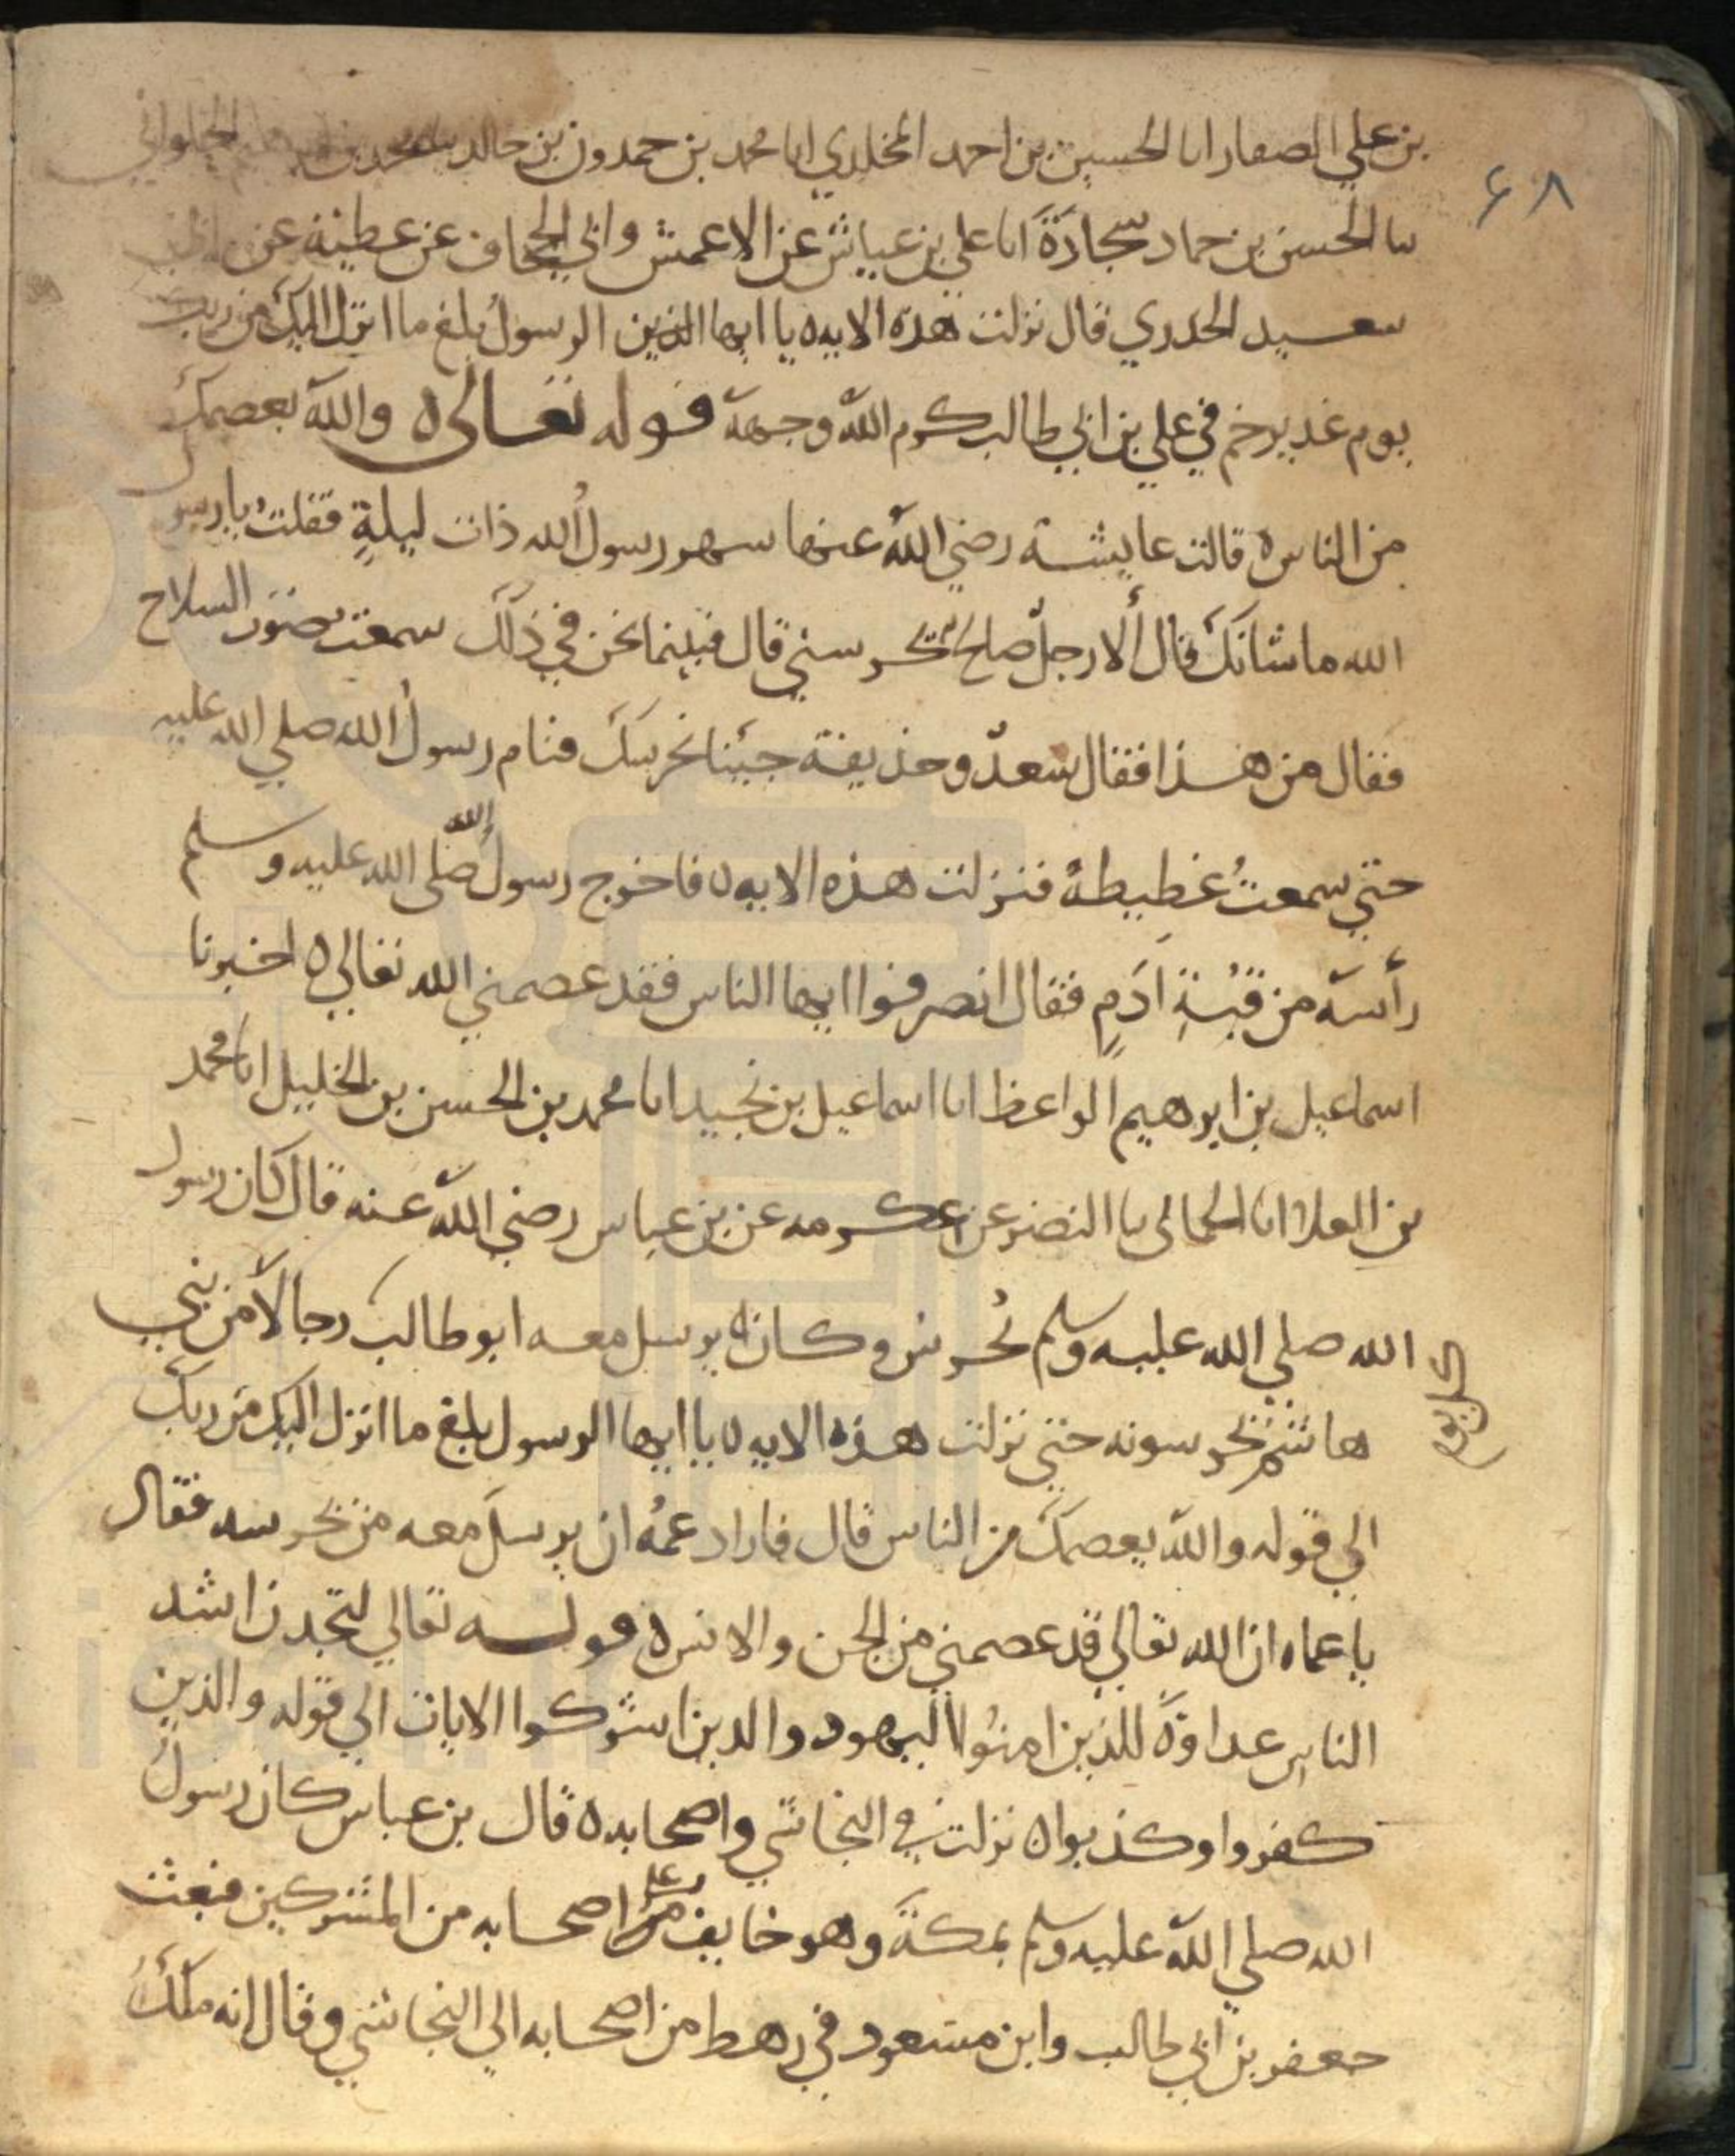 ۶۸
بن علي الصفار انا الحسين بن احمد المخلدي انا محمد بن حمدون بن خالد نا محمد بن الحلواني
نا الحسن بن حماد سجادة انا علي بن عياش عن الاعمش وابي الجحاف عن عطية عن ابي
سعيد الخدري قال نزلت هذه الايه يا ايها الذين الرسول بلغ ما انزل اليك من ربك
يوم غدير خم في علي بن ابي طالب كرم الله وجهه قوله تعالى ه والله يعصمك
من الناس ه قالت عايشة رضي الله عنها سهر رسول الله ذات ليلة فقلت يا رسول
الله ما شانك قال ألا رجل صالح يحرسني قال فبينما نحن في ذلك سمعت صوت السلاح
فقال من هذا فقال سعد وحذيفة جينا نحرسك فنام رسول الله صلي الله عليه
حتي سمعت غطيطه فنزلت هذه الايه ه فاخرج رسول الله صلى الله عليه وسلم
رأسه من قبة ادم فقال انصرفوا ايها الناس فقد عصمني الله تعالي ه اخبرنا
اسماعيل بن ابرهيم الواعظ انا اسماعيل بن نجيد انا محمد بن الحسن بن الخليل انا محمد
بن العلا انا الحمانى نا النضر عن عكرمه عن بن عباس رضي الله عنه قال كان رسول
الله صلي الله عليه وسلم يحرس وكان يرسل معه ابو طالب رجالا من بني
هاشم يحرسونه حتي نزلت هذه الايه ه يا ايها الرسول بلغ ما انزل اليك من ربك
الي قوله والله يعصمك من الناس قال فاراد عمه ان يرسل معه من يحرسه فقال
يا عماه ان الله تعالي قد عصمني من الجن والانس ه قوله تعالي لتجدن اشد
الناس عداوة للذين امنوا اليهود والذين اشركوا الايات الي قوله والذين
كفروا وكذبوا ه نزلت في النجاشي واصحابه ه قال بن عباس كان رسول
الله صلي الله عليه وسلم بمكة وهو خايف على اصحابه من المشركين فبعث
جعفر بن ابي طالب وابن مسعود في رهط من اصحابه الي النجاشي وقال انه ملك